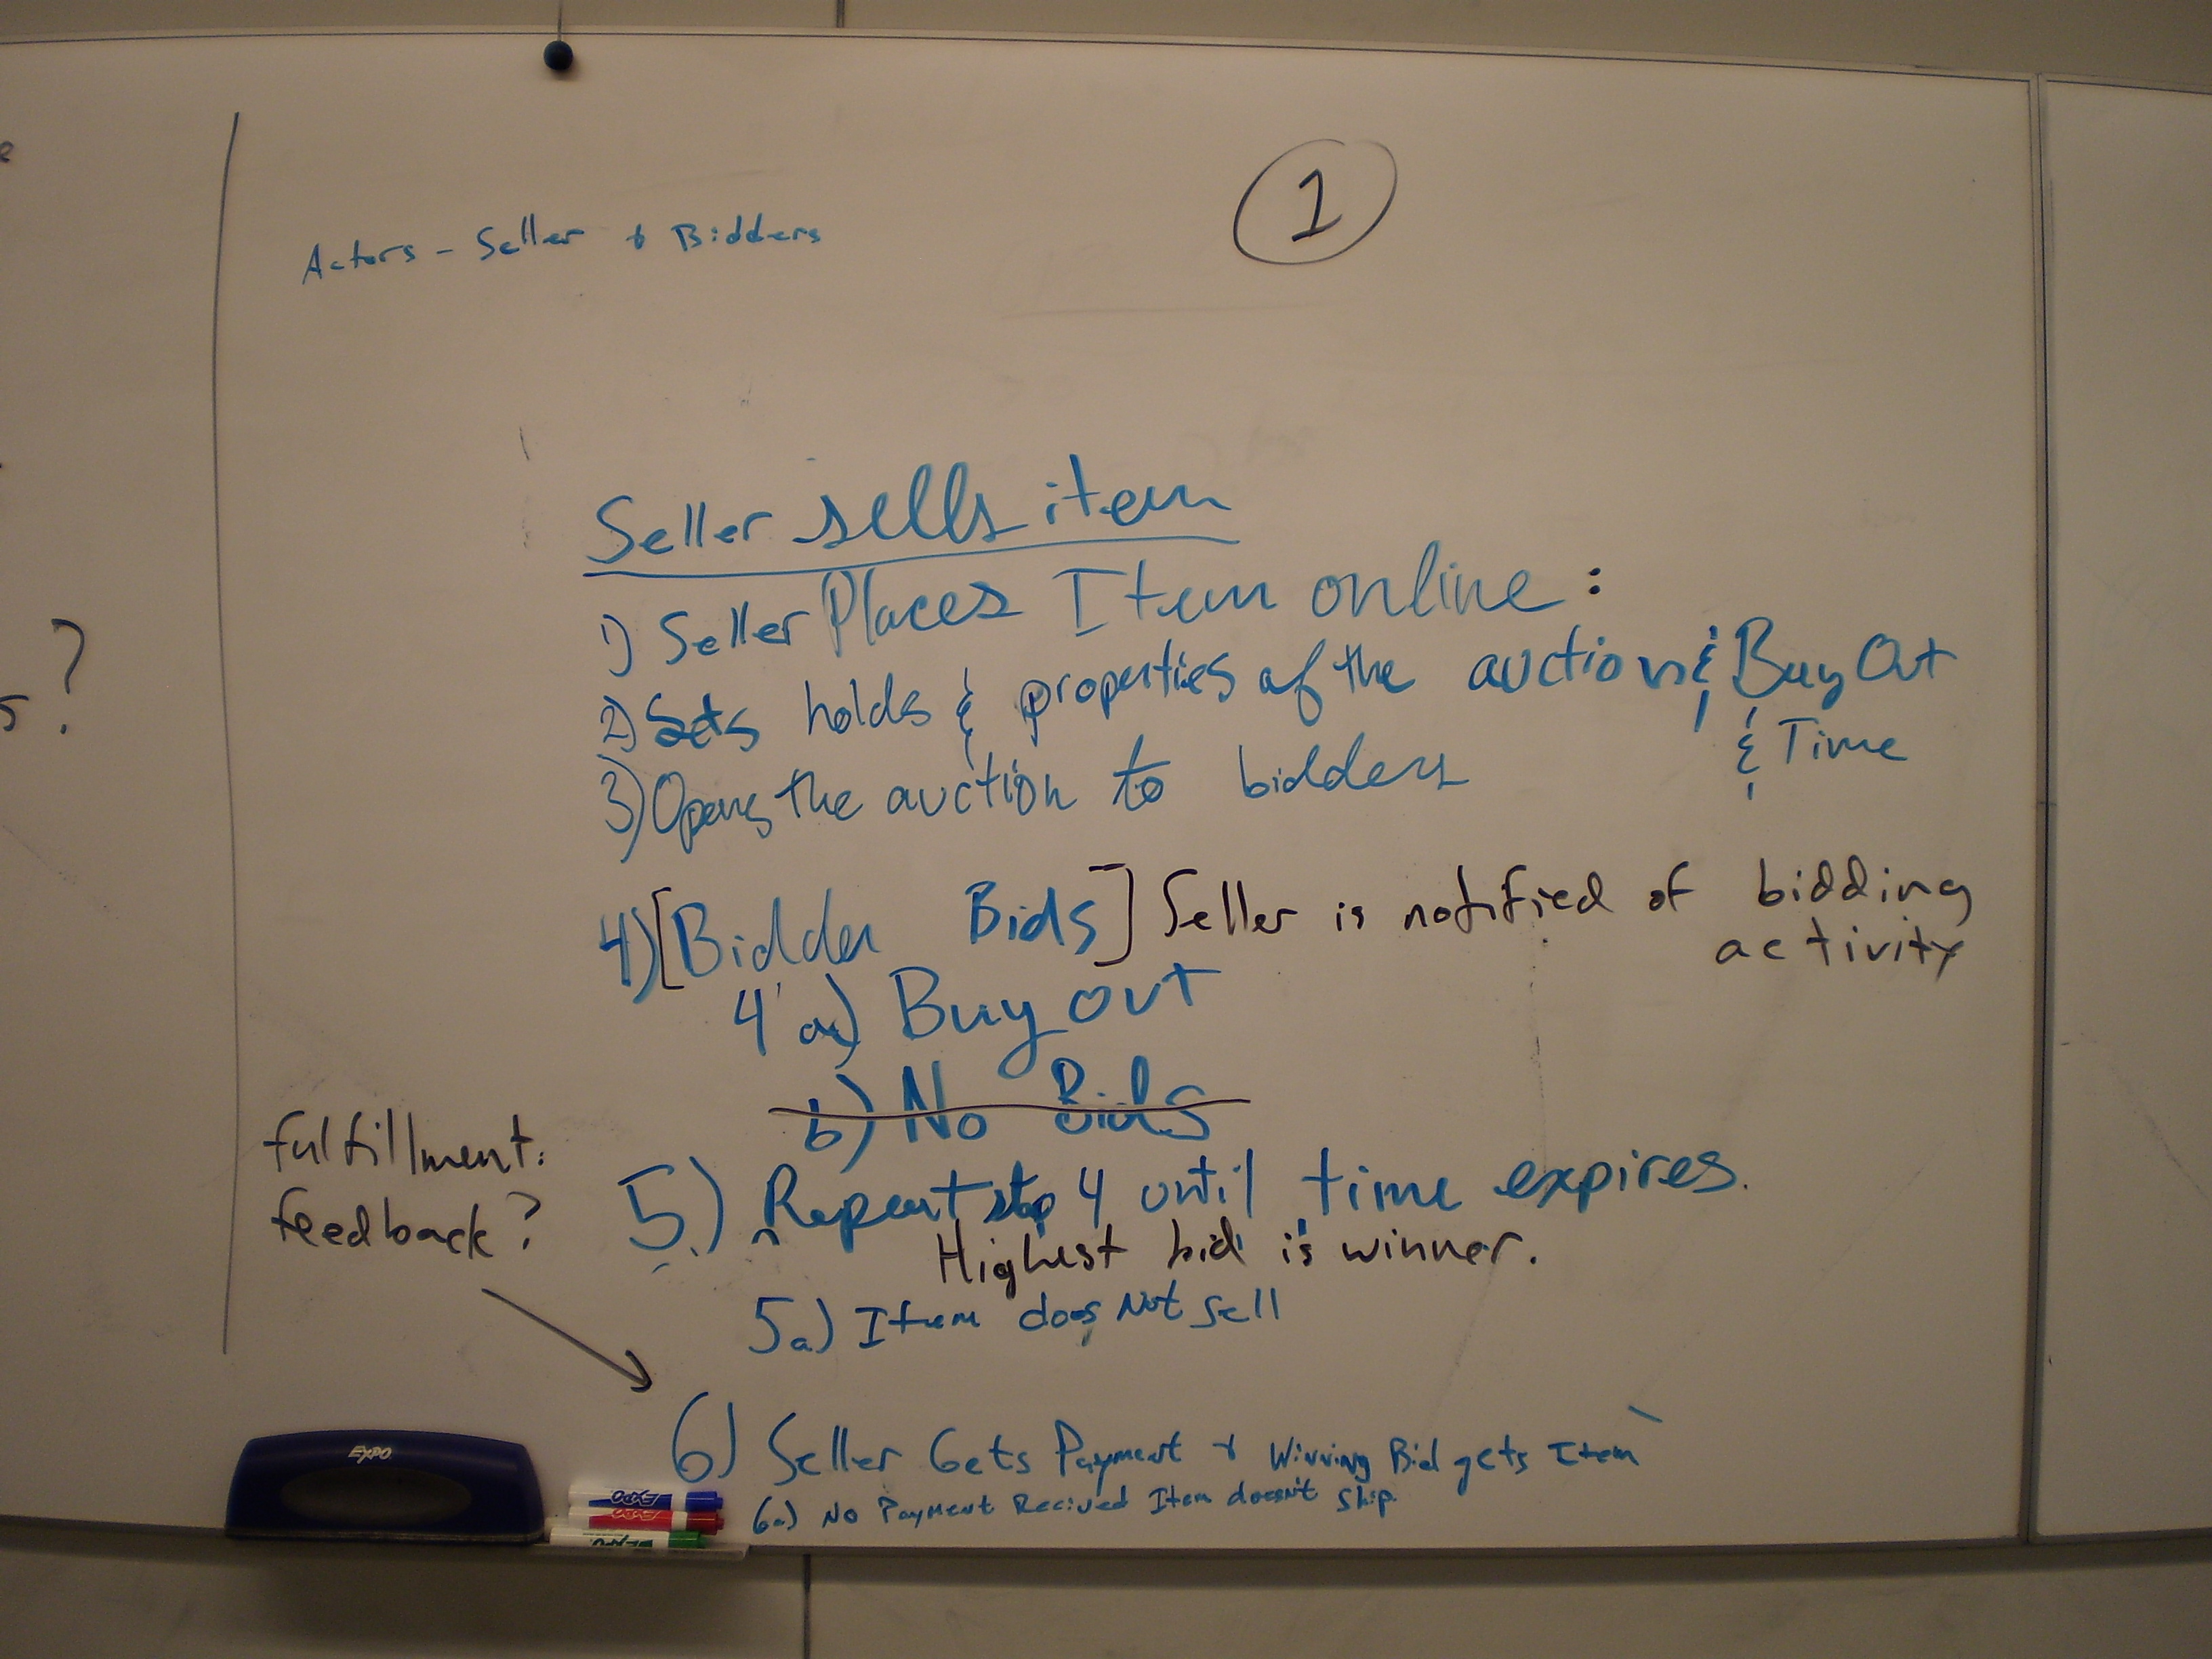 1
Actors - Seller & Bidders
Seller sells item
1) Seller Places Item online :
2) Sets holds & properties of the auction & Buy Out
& Time
3) Opens the auction to bidders
4) [Bidder Bids] Seller is notified of bidding
activity
4 a) Buy out
b) No Bids
fulfillment.
feedback?
5.) Repeat step 4 until time expires.
Highest bid is winner.
5a) Item does Not sell
6) Seller Gets Payment & Winning Bid gets Item
6a) No Payment Recived Item doesn't ship.
?
s?
EXPO
EXPO
EXPO
EXPO